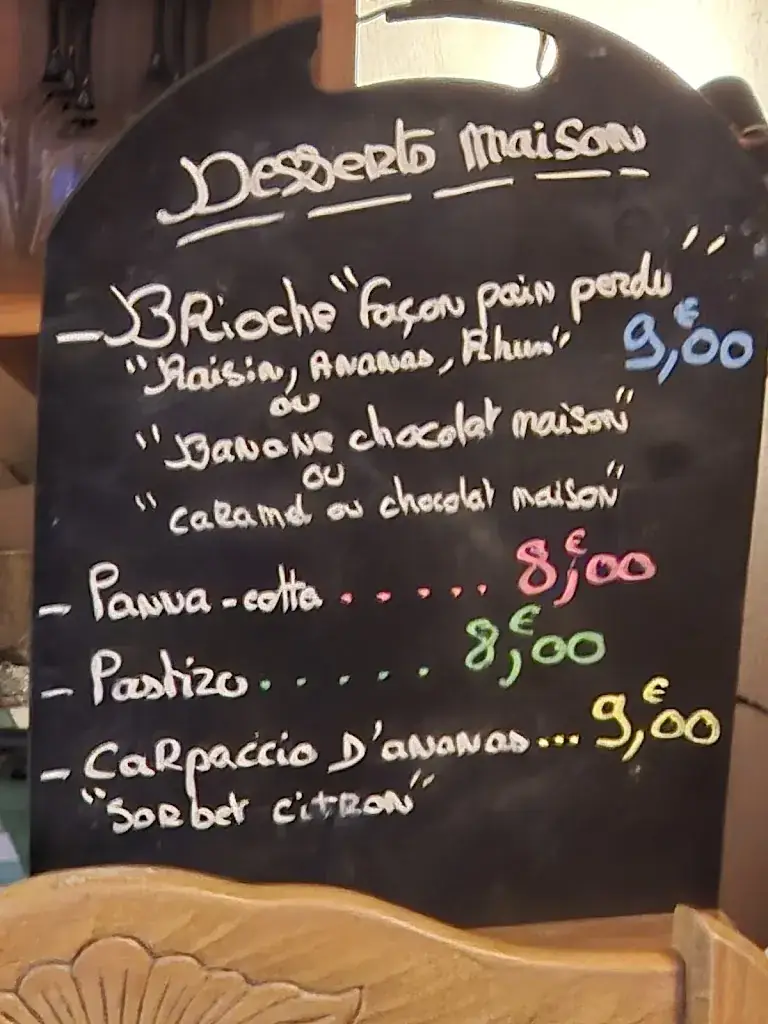 Desserts maison
- Brioche "façon pain perdu"
"Raisin, Ananas, Rhum" 9,00€
ou
"Banane chocolat maison"
ou
"caramel ou chocolat maison"
- Panna-cotta..... 8,00€
- Pastizo..... 8,00€
- Carpaccio D'ananas... 9,00€
"Sorbet citron"